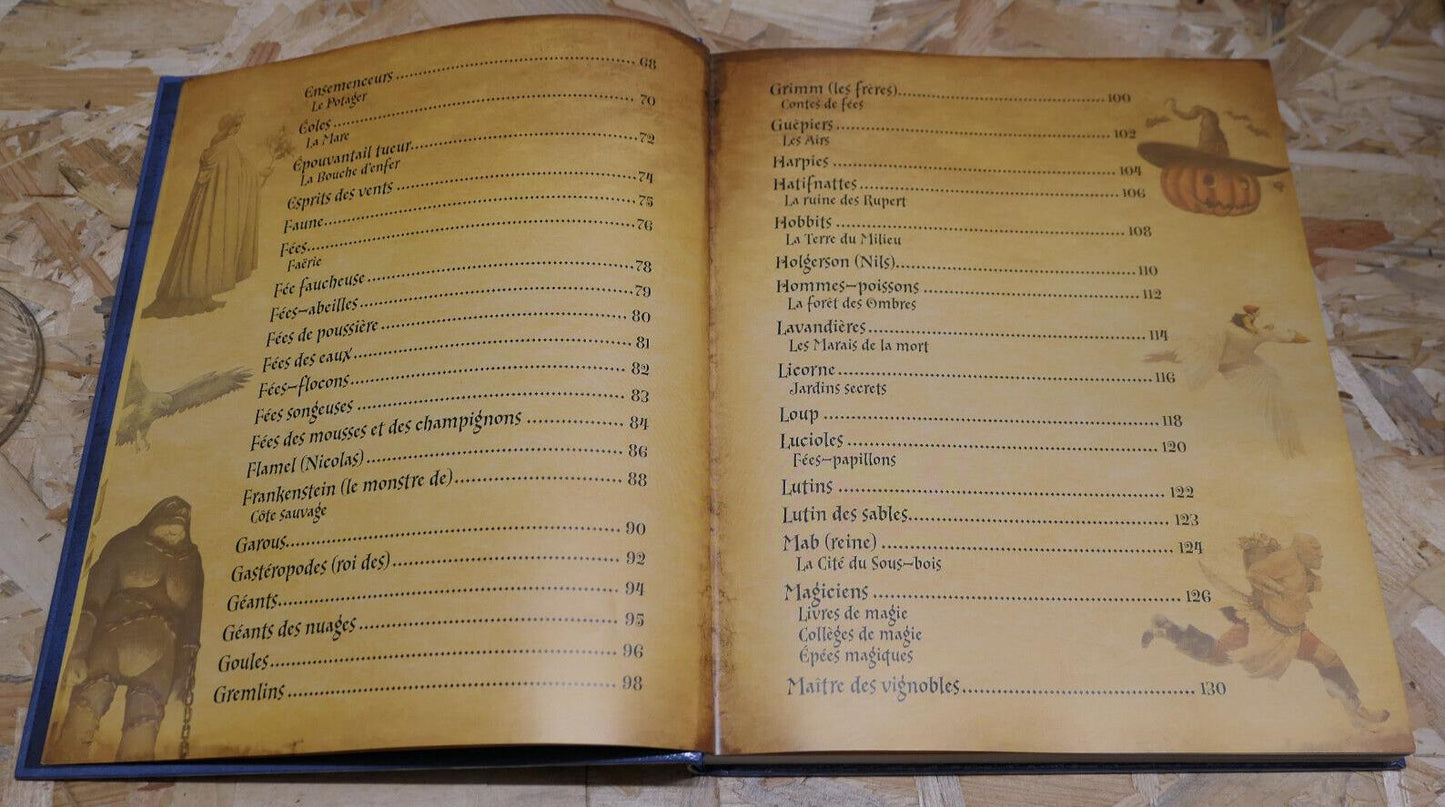 Ensemenceurs 68
Le Potager
Éoles 70
La Mare
Épouvantail tueur 72
La Bouche d'enfer
Esprits des vents 74
Faune 75
Fées 76
Faërie
Fée faucheuse 78
Fées-abeilles 79
Fées de poussière 80
Fées des eaux 81
Fées-flocons 82
Fées songeuses 83
Fées des mousses et des champignons 84
Flamel (Nicolas) 86
Frankenstein (le monstre de) 88
Côte sauvage
Garous 90
Gastéropodes (roi des) 92
Géants 94
Géants des nuages 95
Goules 96
Gremlins 98
Grimm (les frères) 100
Contes de fées
Guêpiers 102
Les Airs
Harpies 104
Hatifnattes 106
La ruine des Rupert
Hobbits 108
La Terre du Milieu
Holgerson (Nils) 110
Hommes-poissons 112
La forêt des Ombres
Lavandières 114
Les Marais de la mort
Licorne 116
Jardins secrets
Loup 118
Lucioles 120
Fées-papillons
Lutins 122
Lutin des sables 123
Mab (reine) 124
La Cité du Sous-bois
Magiciens 126
Livres de magie
Collèges de magie
Épées magiques
Maître des vignobles 130